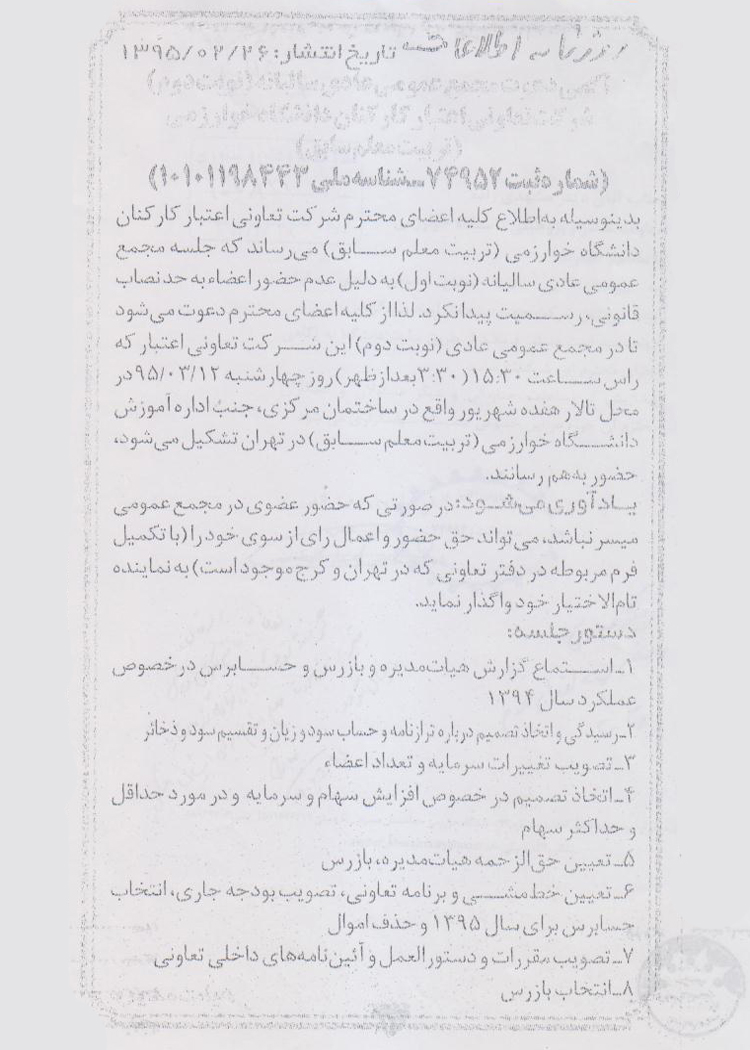 روزنامه اطلاعات تاریخ انتشار: ۱۳۹۵/۰۲/۲۶
آگهی دعوت مجمع عمومی عادی سالیانه (نوبت دوم)
شرکت تعاونی اعتبار کارکنان دانشگاه خوارزمی
(تربیت معلم سابق)
(شماره ثبت ۷۴۹۵۲ـ شناسه ملی ۱۰۱۰۱۱۹۸۴۴۳)
بدینوسیله به اطلاع کلیه اعضای محترم شرکت تعاونی اعتبار کارکنان
دانشگاه خوارزمی (تربیت معلم سابق) می‌رساند که جلسه مجمع
عمومی عادی سالیانه (نوبت اول) به دلیل عدم حضور اعضاء به حد نصاب
قانونی، رسمیت پیدا نکرد. لذا از کلیه اعضای محترم دعوت می‌شود
تا در مجمع عمومی عادی (نوبت دوم) این شرکت تعاونی اعتبار که
راس ساعت ۱۵:۳۰ (۳:۳۰ بعدازظهر) روز چهارشنبه ۹۵/۰۳/۱۲ در
محل تالار هفده شهریور واقع در ساختمان مرکزی، جنب اداره آموزش
دانشگاه خوارزمی (تربیت معلم سابق) در تهران تشکیل می‌شود،
حضور به هم رسانند.
یادآوری می‌شود: در صورتی که حضور عضوی در مجمع عمومی
میسر نباشد، می‌تواند حق حضور و اعمال رای از سوی خود را (با تکمیل
فرم مربوطه در دفتر تعاونی که در تهران و کرج موجود است) به نماینده
تام‌الاختیار خود واگذار نماید.
دستور جلسه:
۱ـ استماع گزارش هیات‌مدیره و بازرس و حسابرس در خصوص
عملکرد سال ۱۳۹۴
۲ـ رسیدگی و اتخاذ تصمیم درباره ترازنامه و حساب سود و زیان و تقسیم سود و ذخائر
۳ـ تصویب تغییرات سرمایه و تعداد اعضاء
۴ـ اتخاذ تصمیم در خصوص افزایش سهام و سرمایه و در مورد حداقل
و حداکثر سهام
۵ـ تعیین حق‌الزحمه هیات‌مدیره، بازرس
۶ـ تعیین خط‌مشی و برنامه تعاونی، تصویب بودجه جاری، انتخاب
حسابرس برای سال ۱۳۹۵ و حذف اموال
۷ـ تصویب مقررات و دستورالعمل و آئین‌نامه‌های داخلی تعاونی
۸ـ انتخاب بازرس